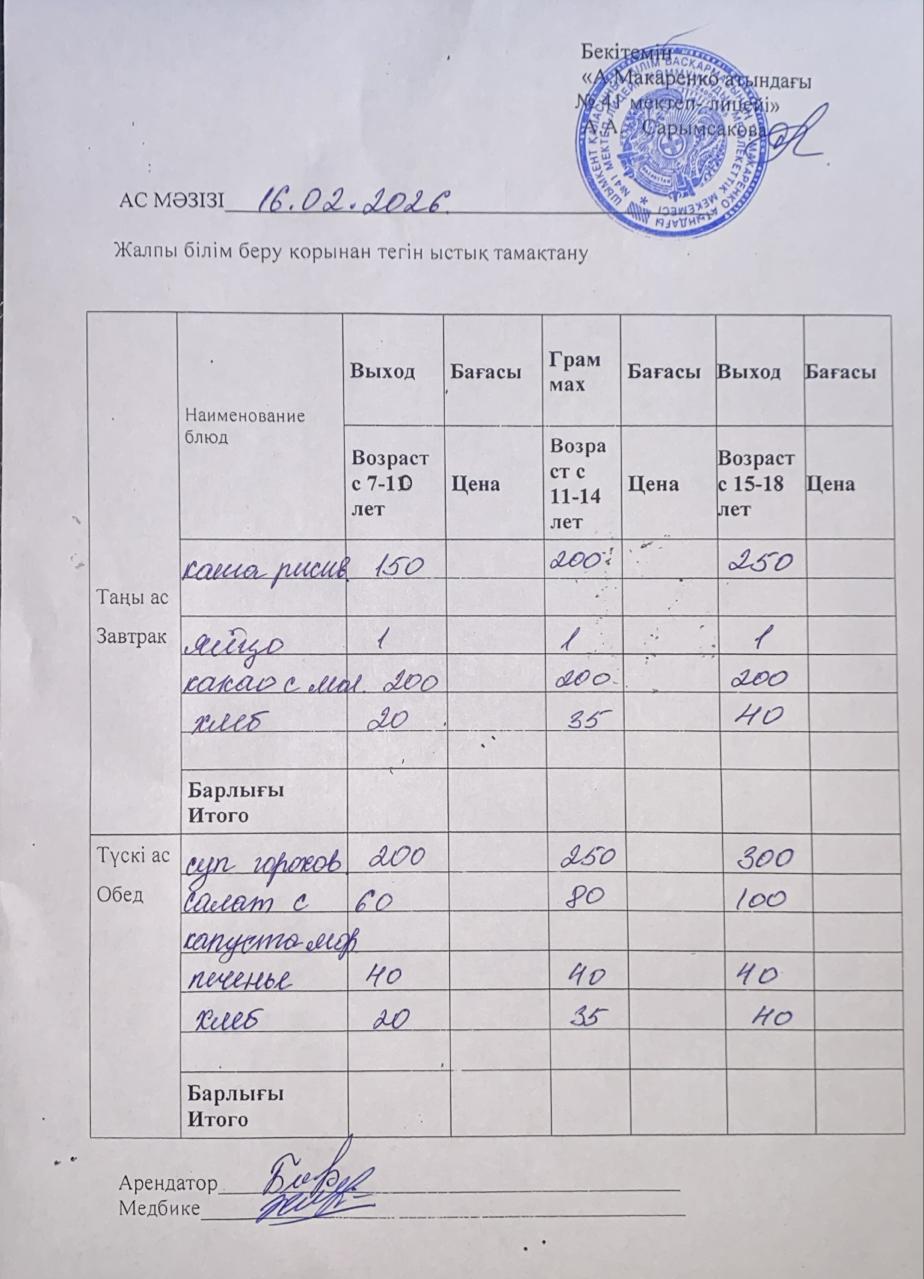 Бекітемін
«А.Макаренко атындағы
№ 41 мектеп- лицейі»
А.А. Сарымсакова
АС МӘЗІЗІ 16.02.2026.
Жалпы білім беру қорынан тегін ыстық тамақтану
Наименование блюд Выход Бағасы Грам мах Бағасы Выход Бағасы
Возраст с 7-10 лет Цена Возра ст с 11-14 лет Цена Возраст с 15-18 лет Цена
Таңы ас
Завтрак
каша рисив 150 200 250
яйцо 1 1 1
какао с мол. 200 200 200
хлеб 20 35 40
Барлығы
Итого
Түскі ас
Обед
суп горохов 200 250 300
салат с 60 80 100
капуста мор
печенье 40 40 40
хлеб 20 35 40
Барлығы
Итого
Арендатор
Медбике